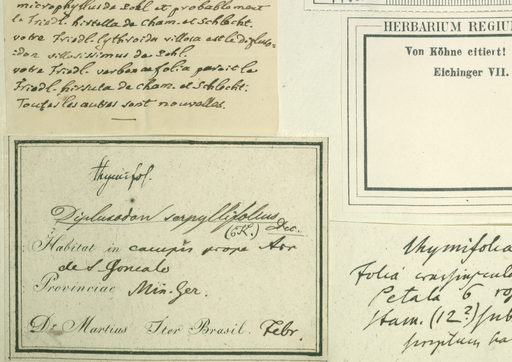 microphyllus de Schl et probablement
la Friedl. hirtella de Cham. et Schlecht.
votre Friedl. lythroides villosa est le diplus-
odon villosissimus de Schl.
votre Friedl. verbenaefolia parait la
Friedl. hirsuta de Cham. et Schlecht.
Toutes les autres sont nouvelles.
HERBARIUM REGIU
Von Köhne citiert!
Eichinger VII.
thymifol.
Diplusodon serpyllifolius
Dec.
Habitat in campis prope
de S. Goncalo
Provinciae Min. Ger.
Dr. Martius Iter Brasil. Febr.
thymifolia
Folia
Petala 6
Stam. (12?)